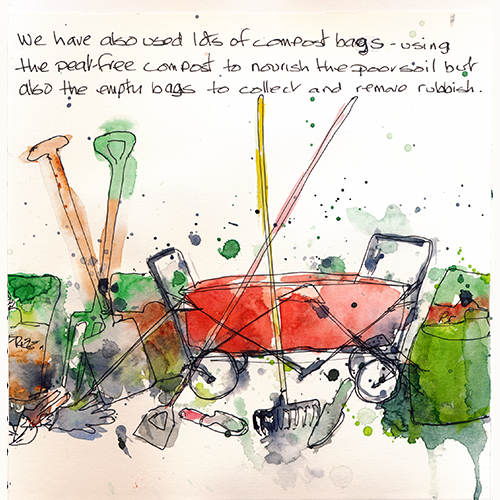 We have also used lots of compost bags - using
the peat-free compost to nourish the poor soil but
also the empty bags to collect and remove rubbish.